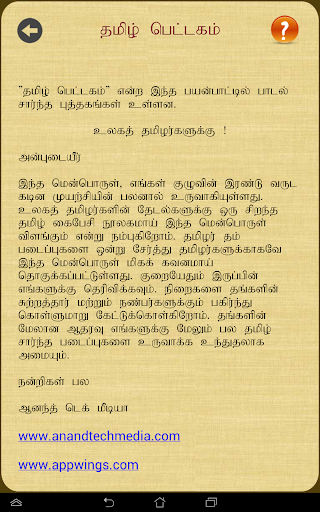 தமிழ் பெட்டகம்
?
"தமிழ் பெட்டகம்" என்ற இந்த பயன்பாட்டில் பாடல்
சார்ந்த புத்தகங்கள் உள்ளன.
உலகத் தமிழர்களுக்கு !
அன்புடையீர்
இந்த மென்பொருள், எங்கள் குழுவின் இரண்டு வருட
கடின முயற்சியின் பலனால் உருவாகியுள்ளது.
உலகத் தமிழர்களின் தேடல்களுக்கு ஒரு சிறந்த
தமிழ் கைபேசி நூலகமாய் இந்த மென்பொருள்
விளங்கும் என்று நம்புகிறோம். தமிழர் தம்
படைப்புகளை ஒன்று சேர்த்து தமிழர்களுக்காகவே
இந்த மென்பொருள் மிகக் கவனமாய்
தொகுக்கப்பட்டுள்ளது. குறையேதும் இருப்பின்
எங்களுக்கு தெரிவிக்கவும். நிறைகளை தங்களின்
சுற்றத்தார் மற்றும் நண்பர்களுக்கும் பகிர்ந்து
கொள்ளுமாறு கேட்டுக்கொள்கிறோம். தங்களின்
மேலான ஆதரவு எங்களுக்கு மேலும் பல தமிழ்
சார்ந்த படைப்புகளை உருவாக்க உந்துதலாக
அமையும்.
நன்றிகள் பல
ஆனந்த் டெக் மீடியா
www.anandtechmedia.com
www.appwings.com